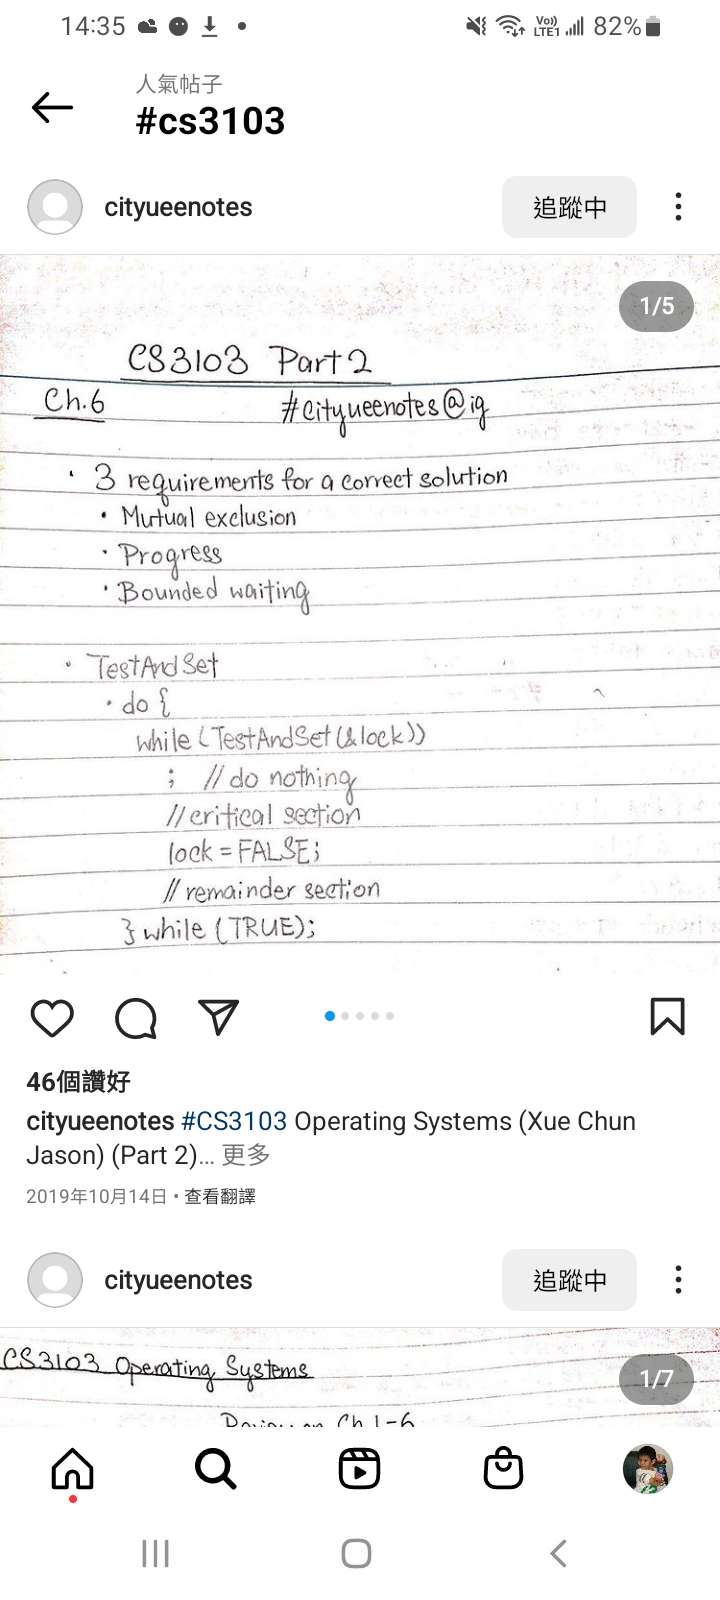 14:35
Vo)) LTE1 82%
人氣帖子
#cs3103
cityueenotes 追蹤中
1/5
CS3103 Part 2
Ch.6 #cityueenotes@ig
· 3 requirements for a correct solution
· Mutual exclusion
· Progress
· Bounded waiting
· TestAndSet
· do {
while (TestAndSet(&lock))
; // do nothing
// critical section
lock = FALSE;
// remainder section
} while (TRUE);
46個讚好
cityueenotes #CS3103 Operating Systems (Xue Chun
Jason) (Part 2)... 更多
2019年10月14日 • 查看翻譯
cityueenotes 追蹤中
CS3103 Operating Systems
1/7
Ch 1-6